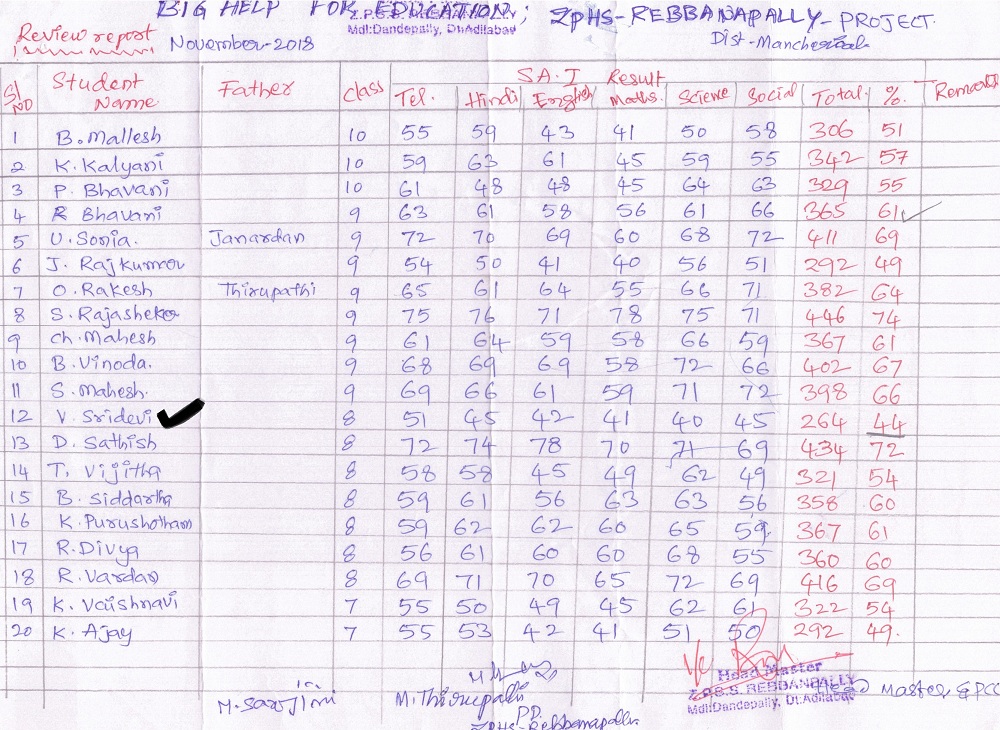 BIG HELP FOR EDUCATION; ZPHS-REBBANAPALLY-PROJECT.
Z.P.S.S. REBBANPALLY
Mdl:Dandepally, Dt:Adilabad
Review report November-2018 Dist-Mancherial
Sl NO Student Name Father class S.A.I Result Total. %. Remark
Tel. Hindi English Maths. Science Social
1 B.Mallesh 10 55 59 43 41 50 58 306 51
2 K.Kalyani 10 59 63 61 45 59 55 342 57
3 P. Bhavani 10 61 48 48 45 64 63 329 55
4 R Bhavani 9 63 61 58 56 61 66 365 61
5 U.Sonia. Janardan 9 72 70 69 60 68 72 411 69
6 J. Rajkumar 9 54 50 41 40 56 51 292 49
7 O.Rakesh Thirupathi 9 65 61 64 55 66 71 382 64
8 S.Rajasheker 9 75 76 71 78 75 71 446 74
9 Ch.Mahesh 9 61 64 59 58 66 59 367 61
10 B.Vinoda. 9 68 69 69 58 72 66 402 67
11 S.Mahesh. 9 69 66 61 59 71 72 398 66
12 V. Sridevi 8 51 45 42 41 40 45 264 44
13 D. Sathish 8 72 74 78 70 71 69 434 72
14 T. Vijitha 8 58 58 45 49 62 49 321 54
15 B. Siddartha 8 59 61 56 63 63 56 358 60
16 K.Purushotham 8 59 62 62 60 65 59 367 61
17 R.Divya 8 56 61 60 60 68 55 360 60
18 R.Vardan 8 69 71 70 65 72 69 416 69
19 K.Vaishnavi 7 55 50 49 45 62 61 322 54
20 K. Ajay 7 55 53 42 41 51 50 292 49.
Head Master
M.Sarojini M.Thirupathi Z.P.S.S. REBBANPALLY Head Master &PCC
P.D. Mdl:Dandepally, Dt:Adilabad
ZPHS-Rebbanapally